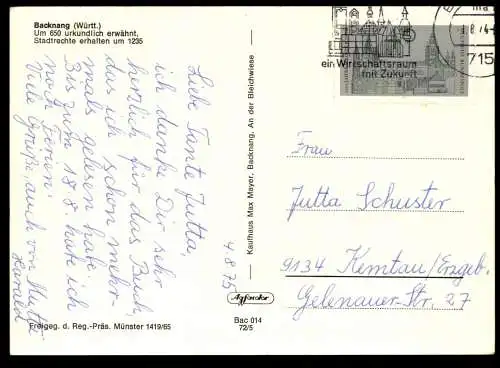 Backnang (Württ.)
Um 650 urkundlich erwähnt,
Stadtrechte erhalten um 1235
Liebe Tante Jutta,
ich danke Dir sehr
herzlich für das Buch,
das ich schon mehr
mals gelesen habe.
Bis zum 18.8. habe ich
noch Ferien.
Viele Grüße auch von Mutti
Harald
4.8.75
Freigeg. d. Reg.-Präs. Münster 1419/65
Kaufhaus Max Mayer, Backnang, An der Bleichwiese
Bac 014
72/5
ein Wirtschaftsraum
mit Zukunft
715
Frau
Jutta Schuster
9134 Kemtau/Erzgeb.
Gelenauer-Str. 27